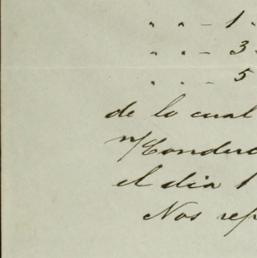 " " – 1
" " – 3
" " – 5
de lo cual
n/Conduc
el dia 1
Nos rep